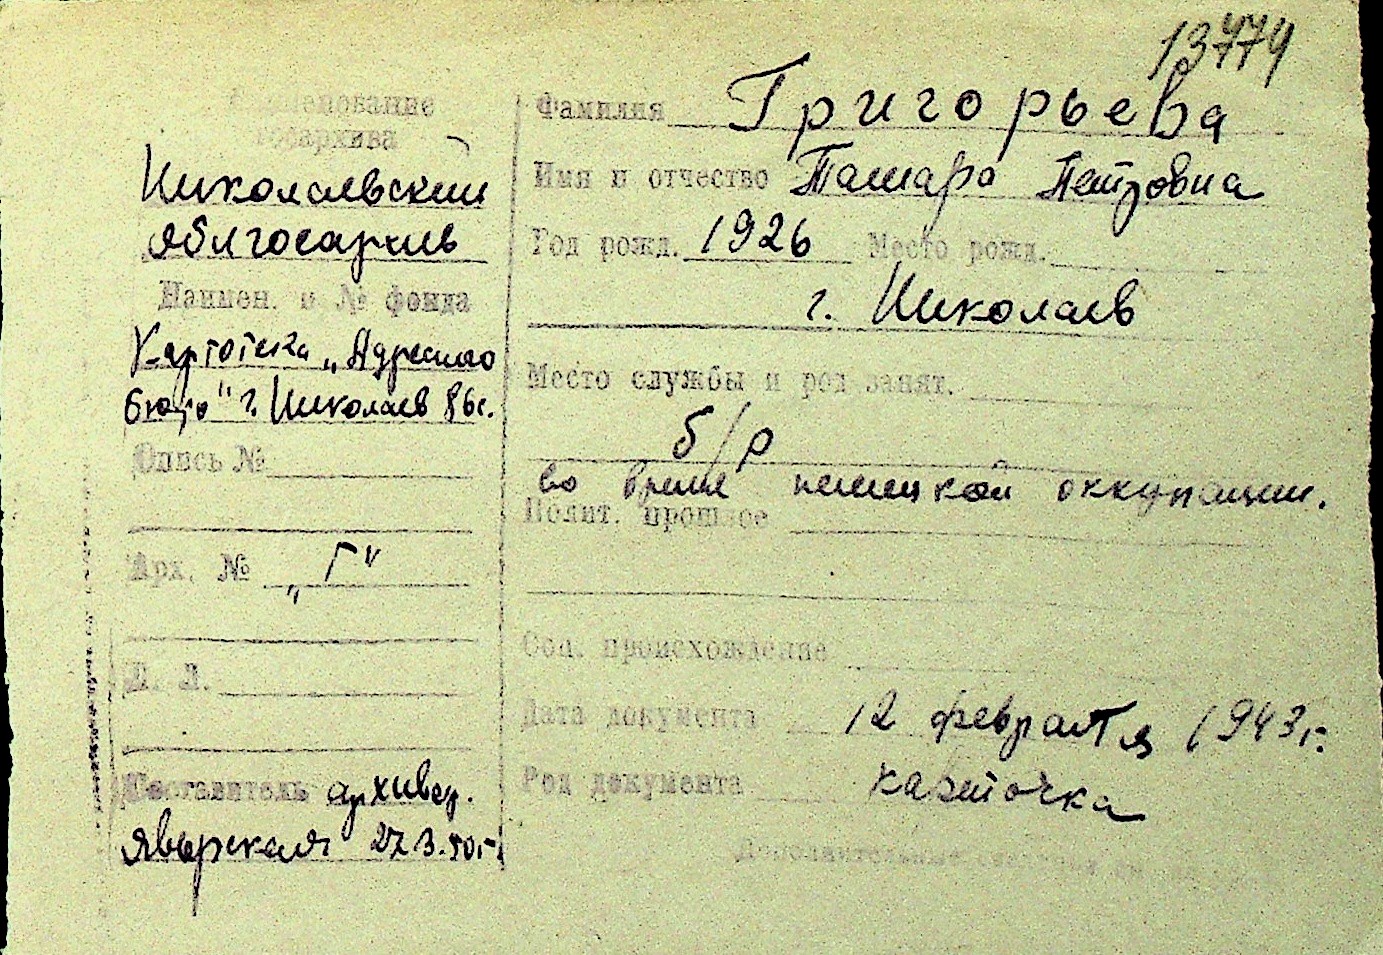 13774
Наименование
госархива
Николаевский
облгосархив
Наимен. и № фонда
Картотека „Адресного
бюро" г. Николаев
Опись №
Арх. № „Г"
Л. Л.
Составитель архивер.
27.3.50г.
Фамилия Григорьева
Имя и отчество Тамара Петровна
Год рожд. 1926 Место рожд.
г. Николаев
Место службы и род занят.
б/р
во время немецкой оккупации.
Полит. прошлое
Соц. происхождение
Дата документа 12 февраля 1943г.
Род документа карточка
Дополнительные сведения